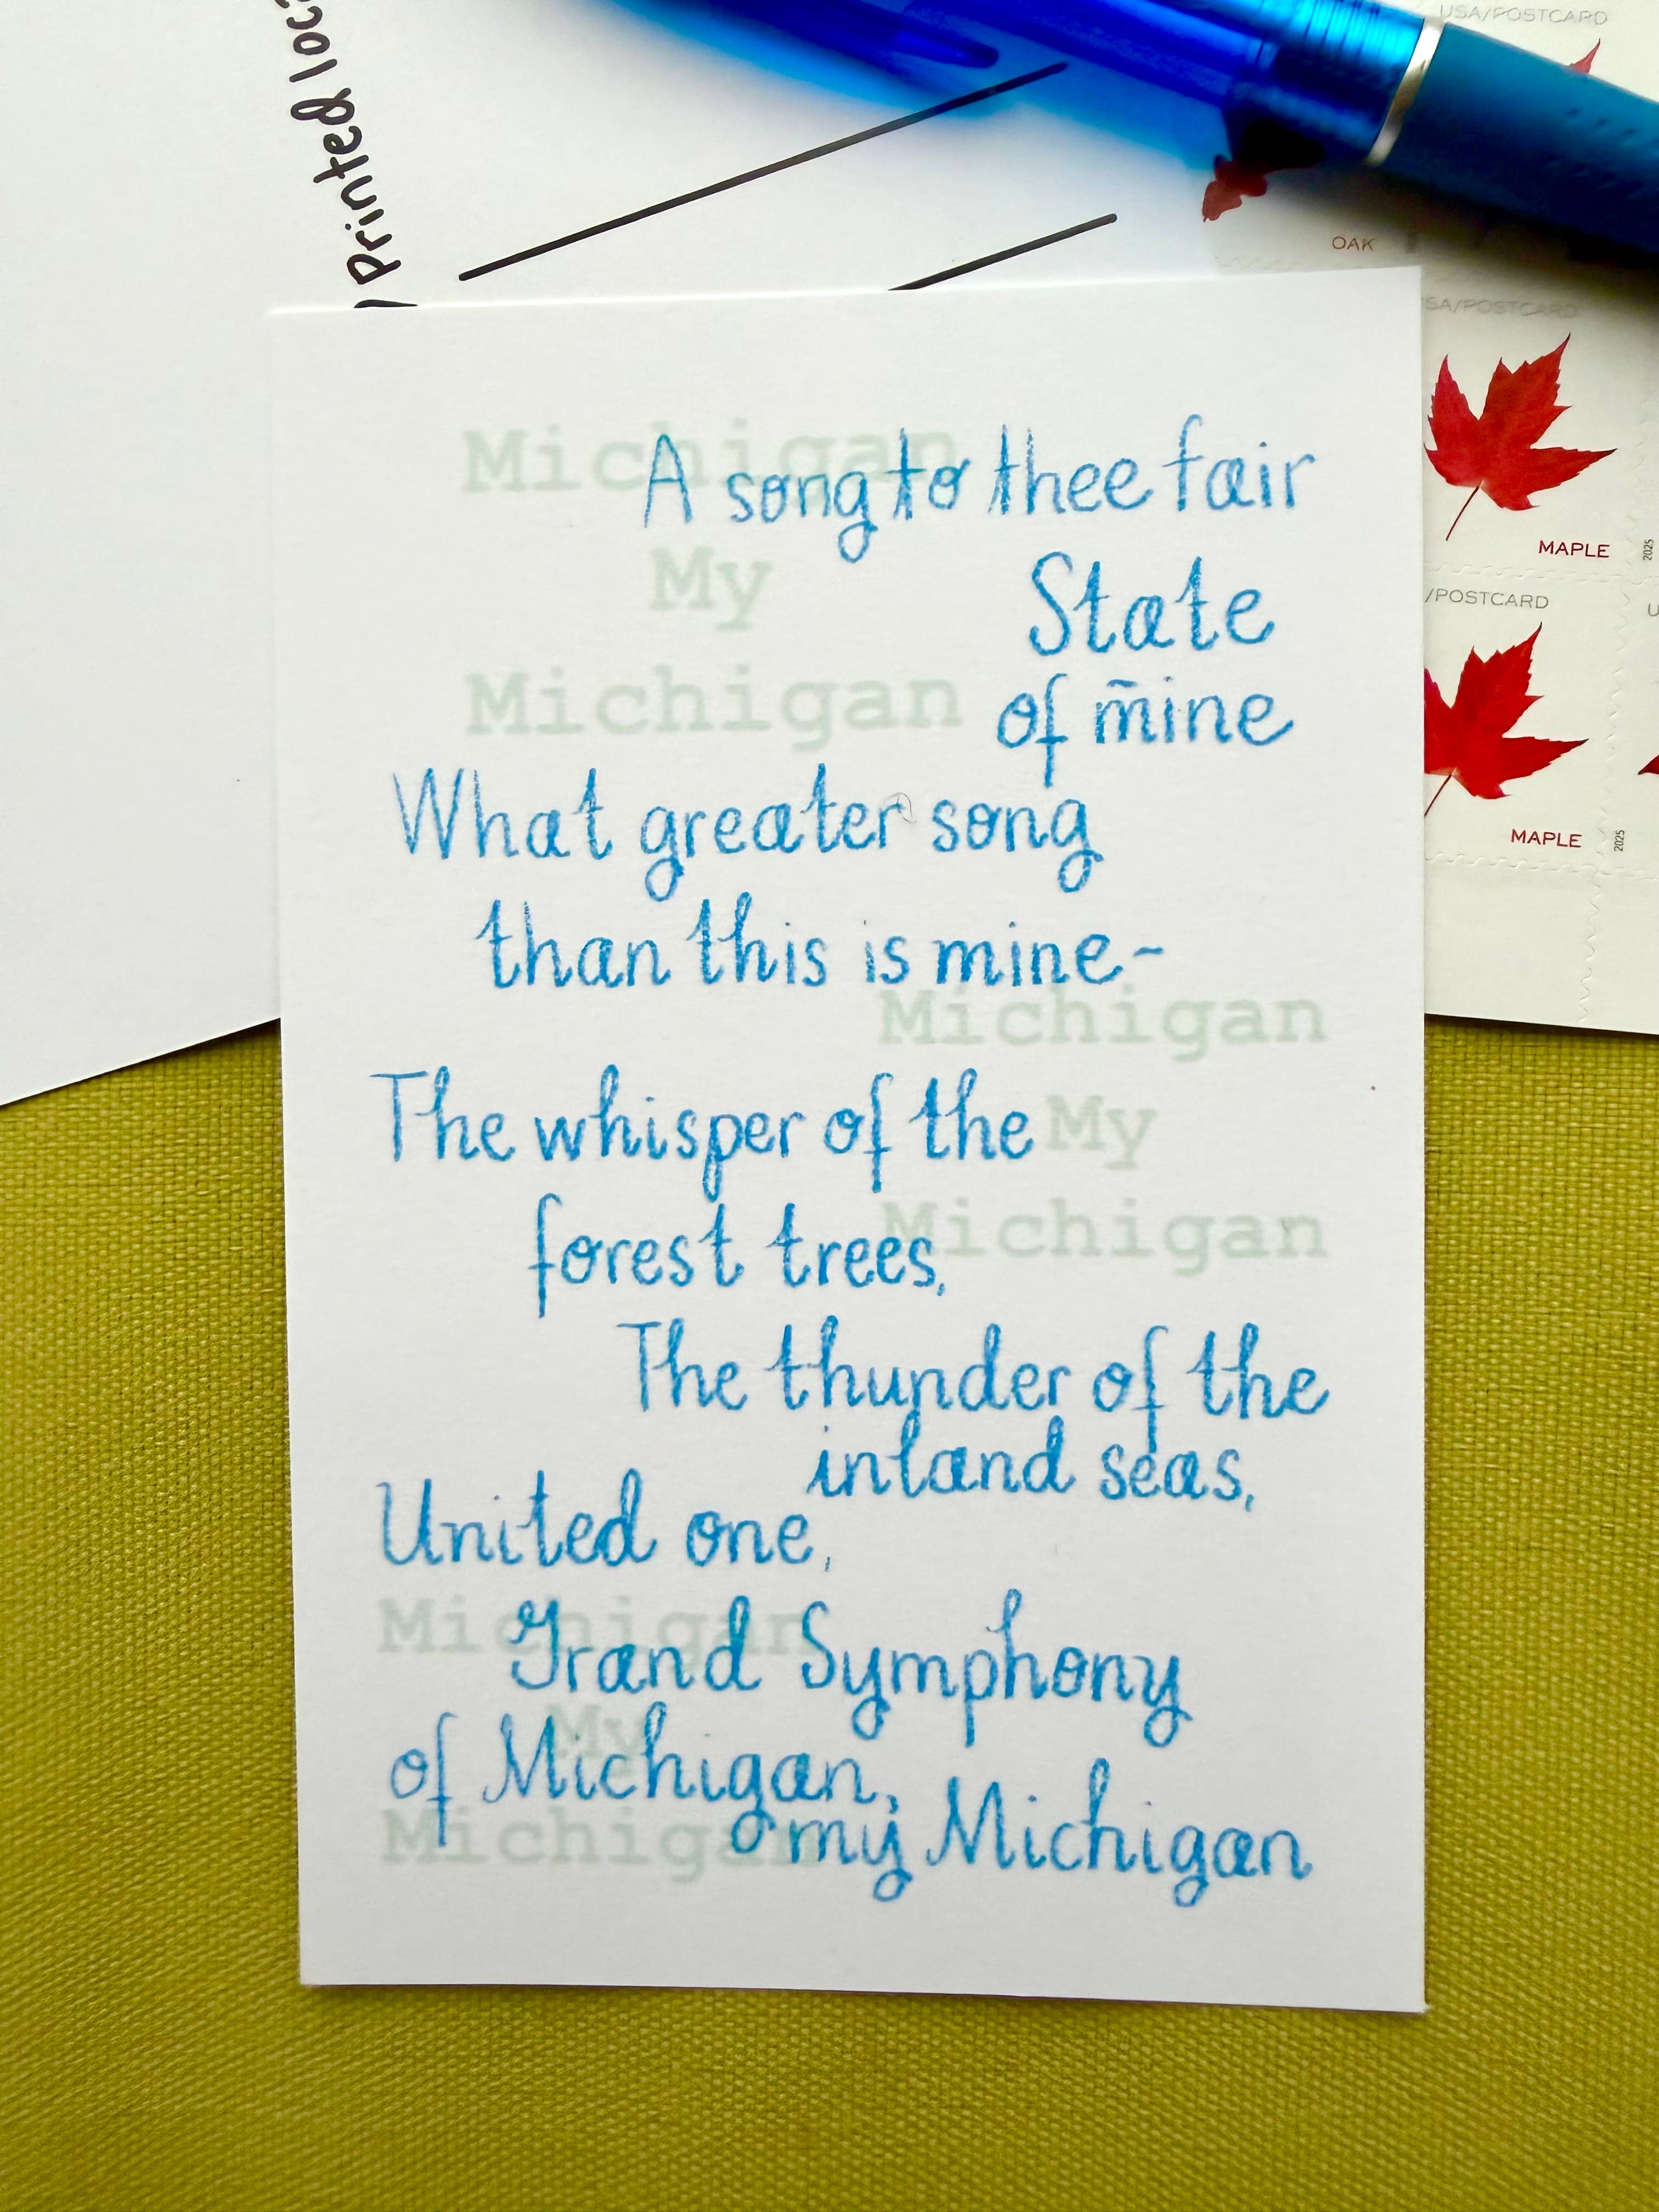 Printed loc
USA/POSTCARD
OAK
SA/POSTCARD
MAPLE
2025
/POSTCARD
U
MAPLE
2025
Michigan
A song to thee fair
My
State
Michigan
of m̃ine
What greater song
than this is mine-
Michigan
The whisper of the
My
forest trees,
Michigan
The thunder of the
inland seas,
United one,
Michigan
Grand Symphony
My
of Michigan,
Michigan
my Michigan